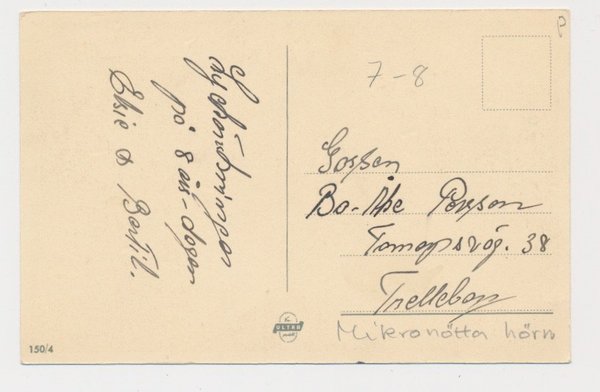 Lyckönskningar
på 8 års dagen
Elsie & Bertil.
P
7-8
Gossen
Bo-Åke Persson
38
Trelleborg
Mikronötta hörn
K.
ULTRA
150/4